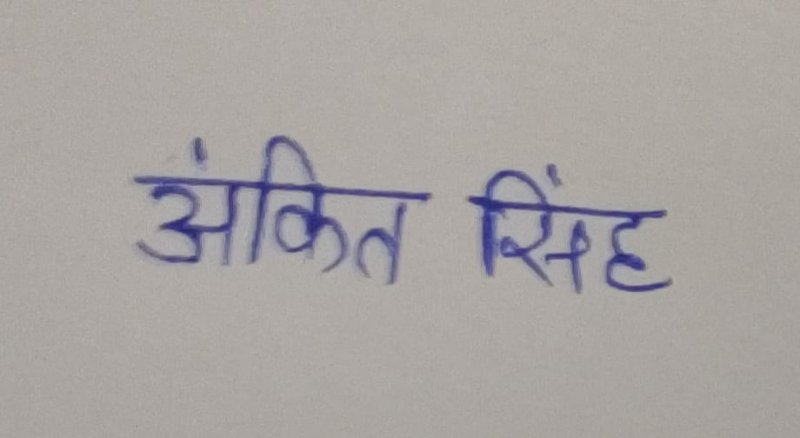 अंकित सिंह